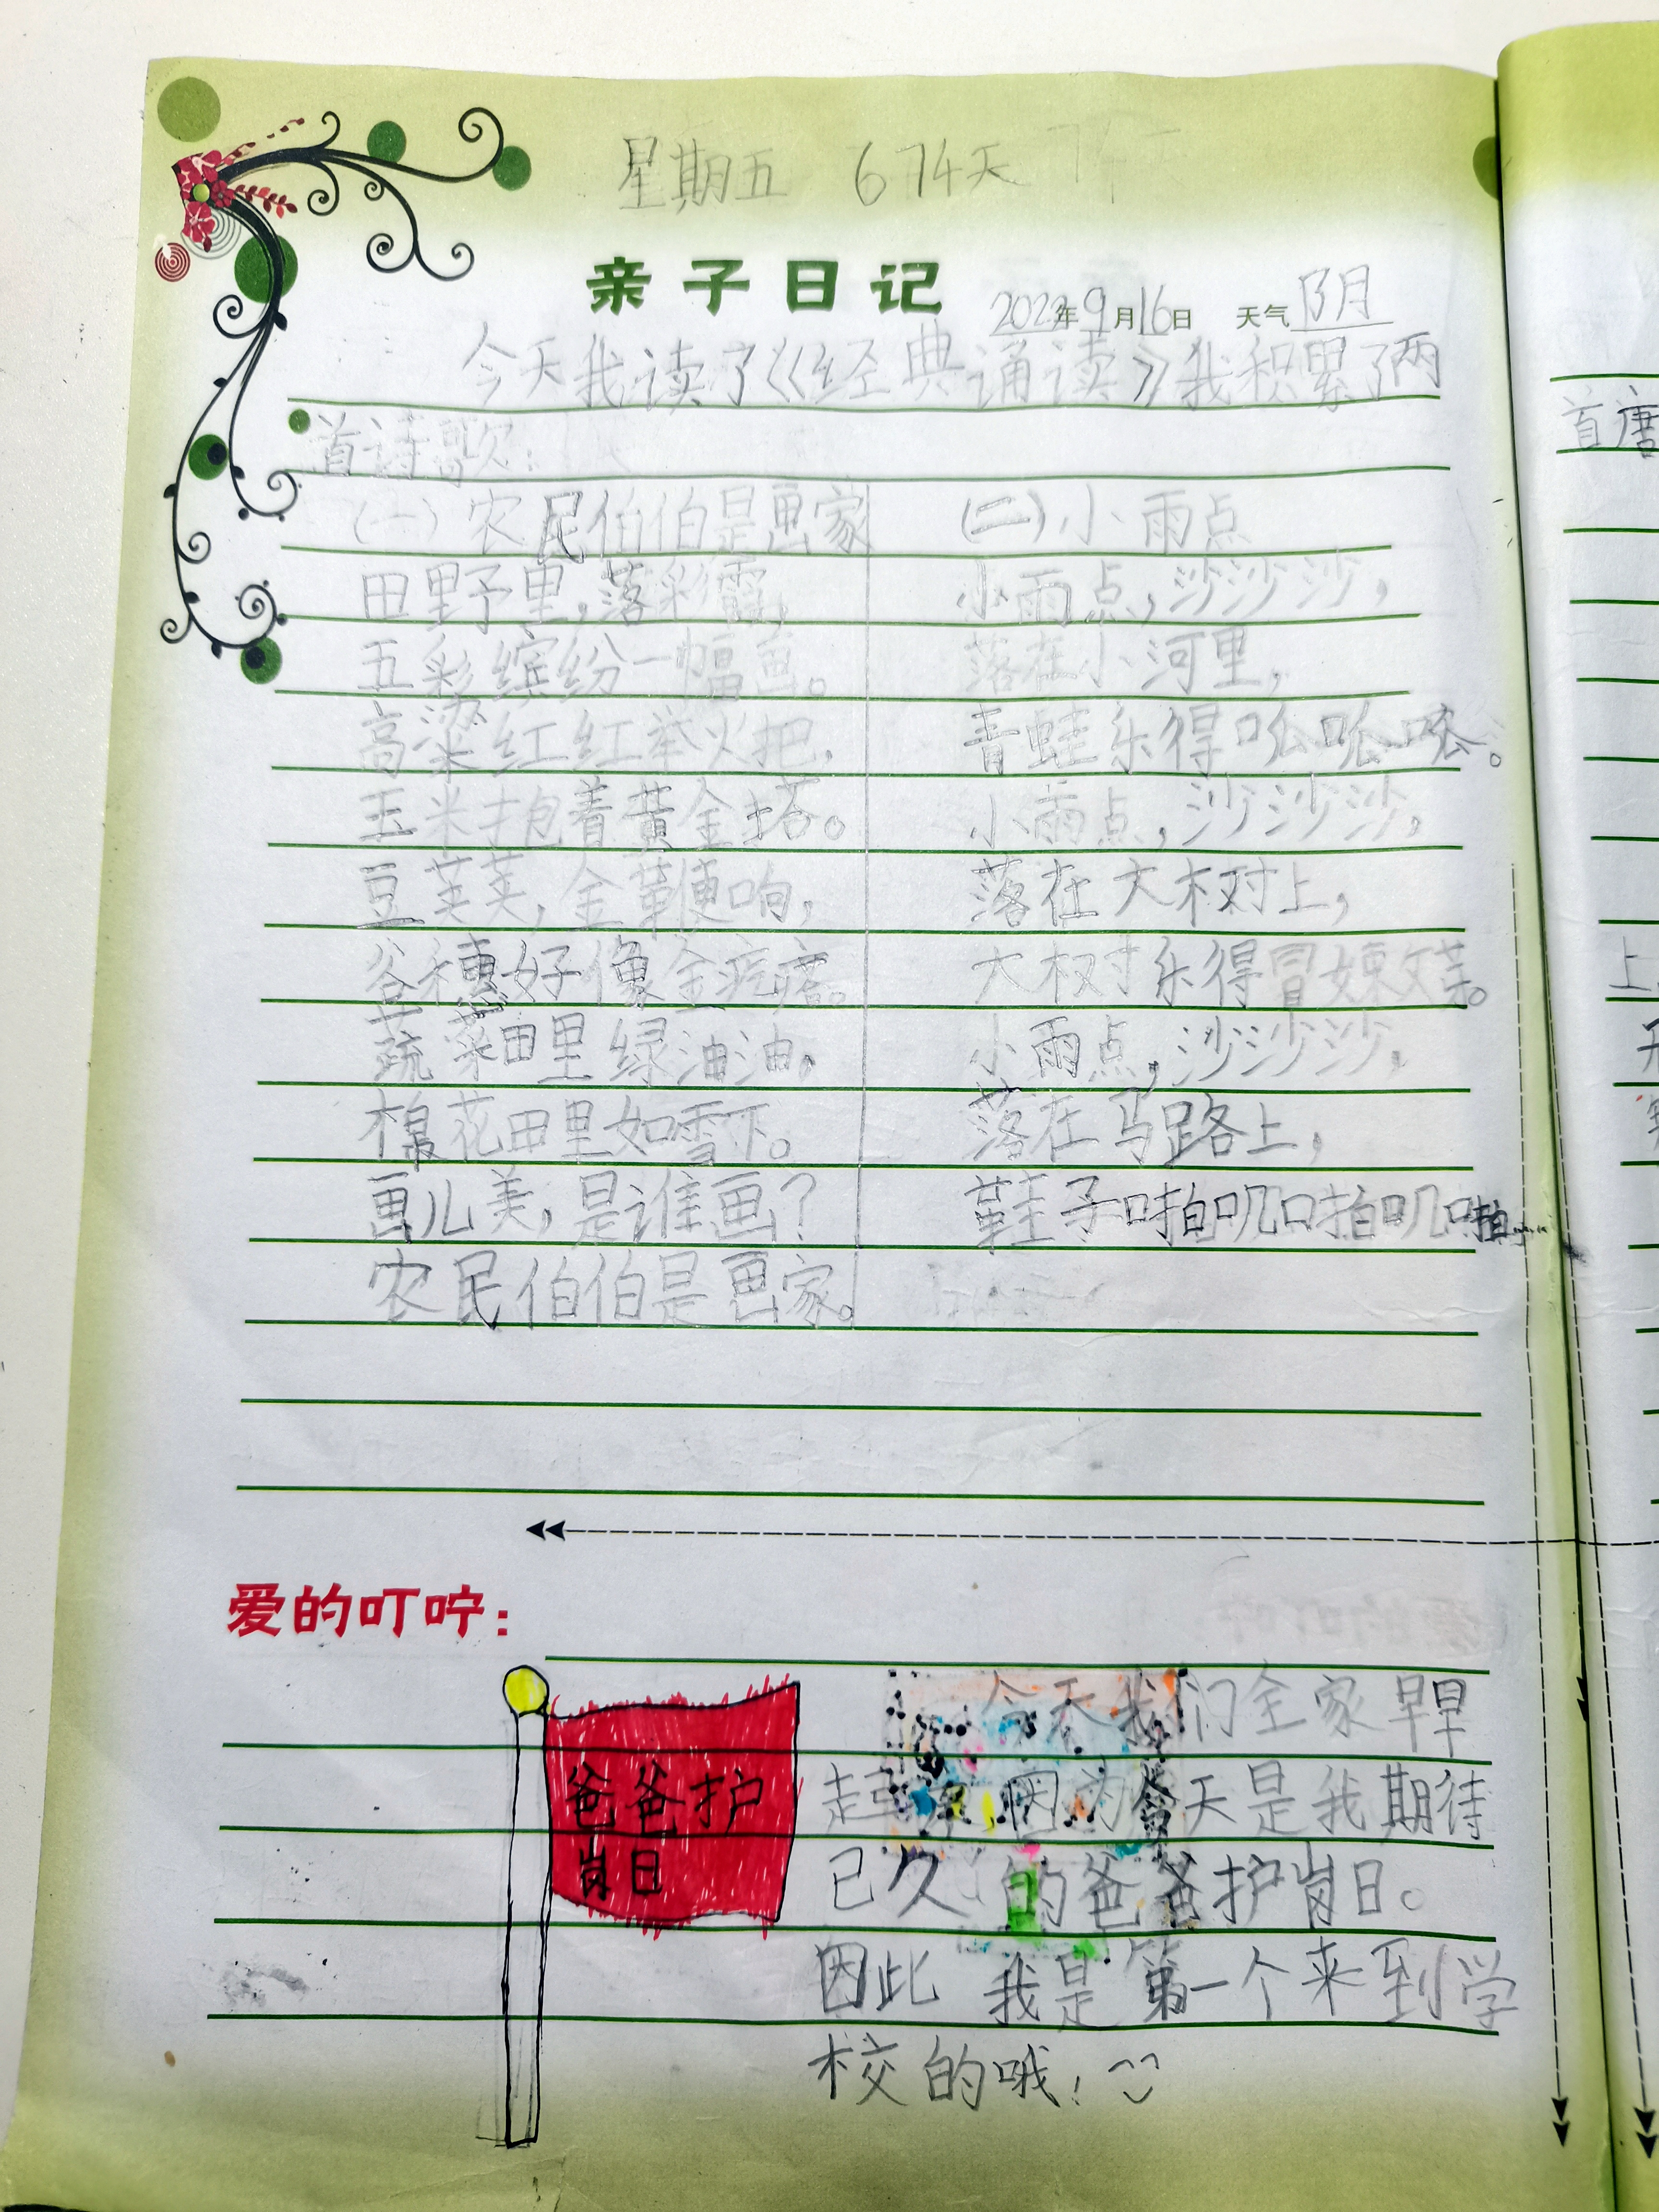 星期五 674天
亲子日记 2022年9月16日 天气 阴
今天我读了《经典诵读》我积累了两
首诗歌:
(一)农民伯伯是画家
田野里,落彩霞,
五彩缤纷一幅画。
高粱红红举火把,
玉米抱着黄金塔。
豆荚荚,金鞭响,
谷穗好像金疙瘩。
蔬菜田里绿油油,
棉花田里如雪下。
画儿美,是谁画?
农民伯伯是画家。
(二)小雨点
小雨点,沙沙沙,
落在小河里,
青蛙乐得呱呱呱。
小雨点,沙沙沙,
落在大树上,
大树乐得冒嫩芽。
小雨点,沙沙沙,
落在马路上,
鞋子啪叽啪叽啪……
爱的叮咛:
爸爸护
岗日
今天我们全家早早
起来因为今天是我期待
已久的爸爸护岗日。
因此 我是第一个来到学
校的哦!
首唐
上